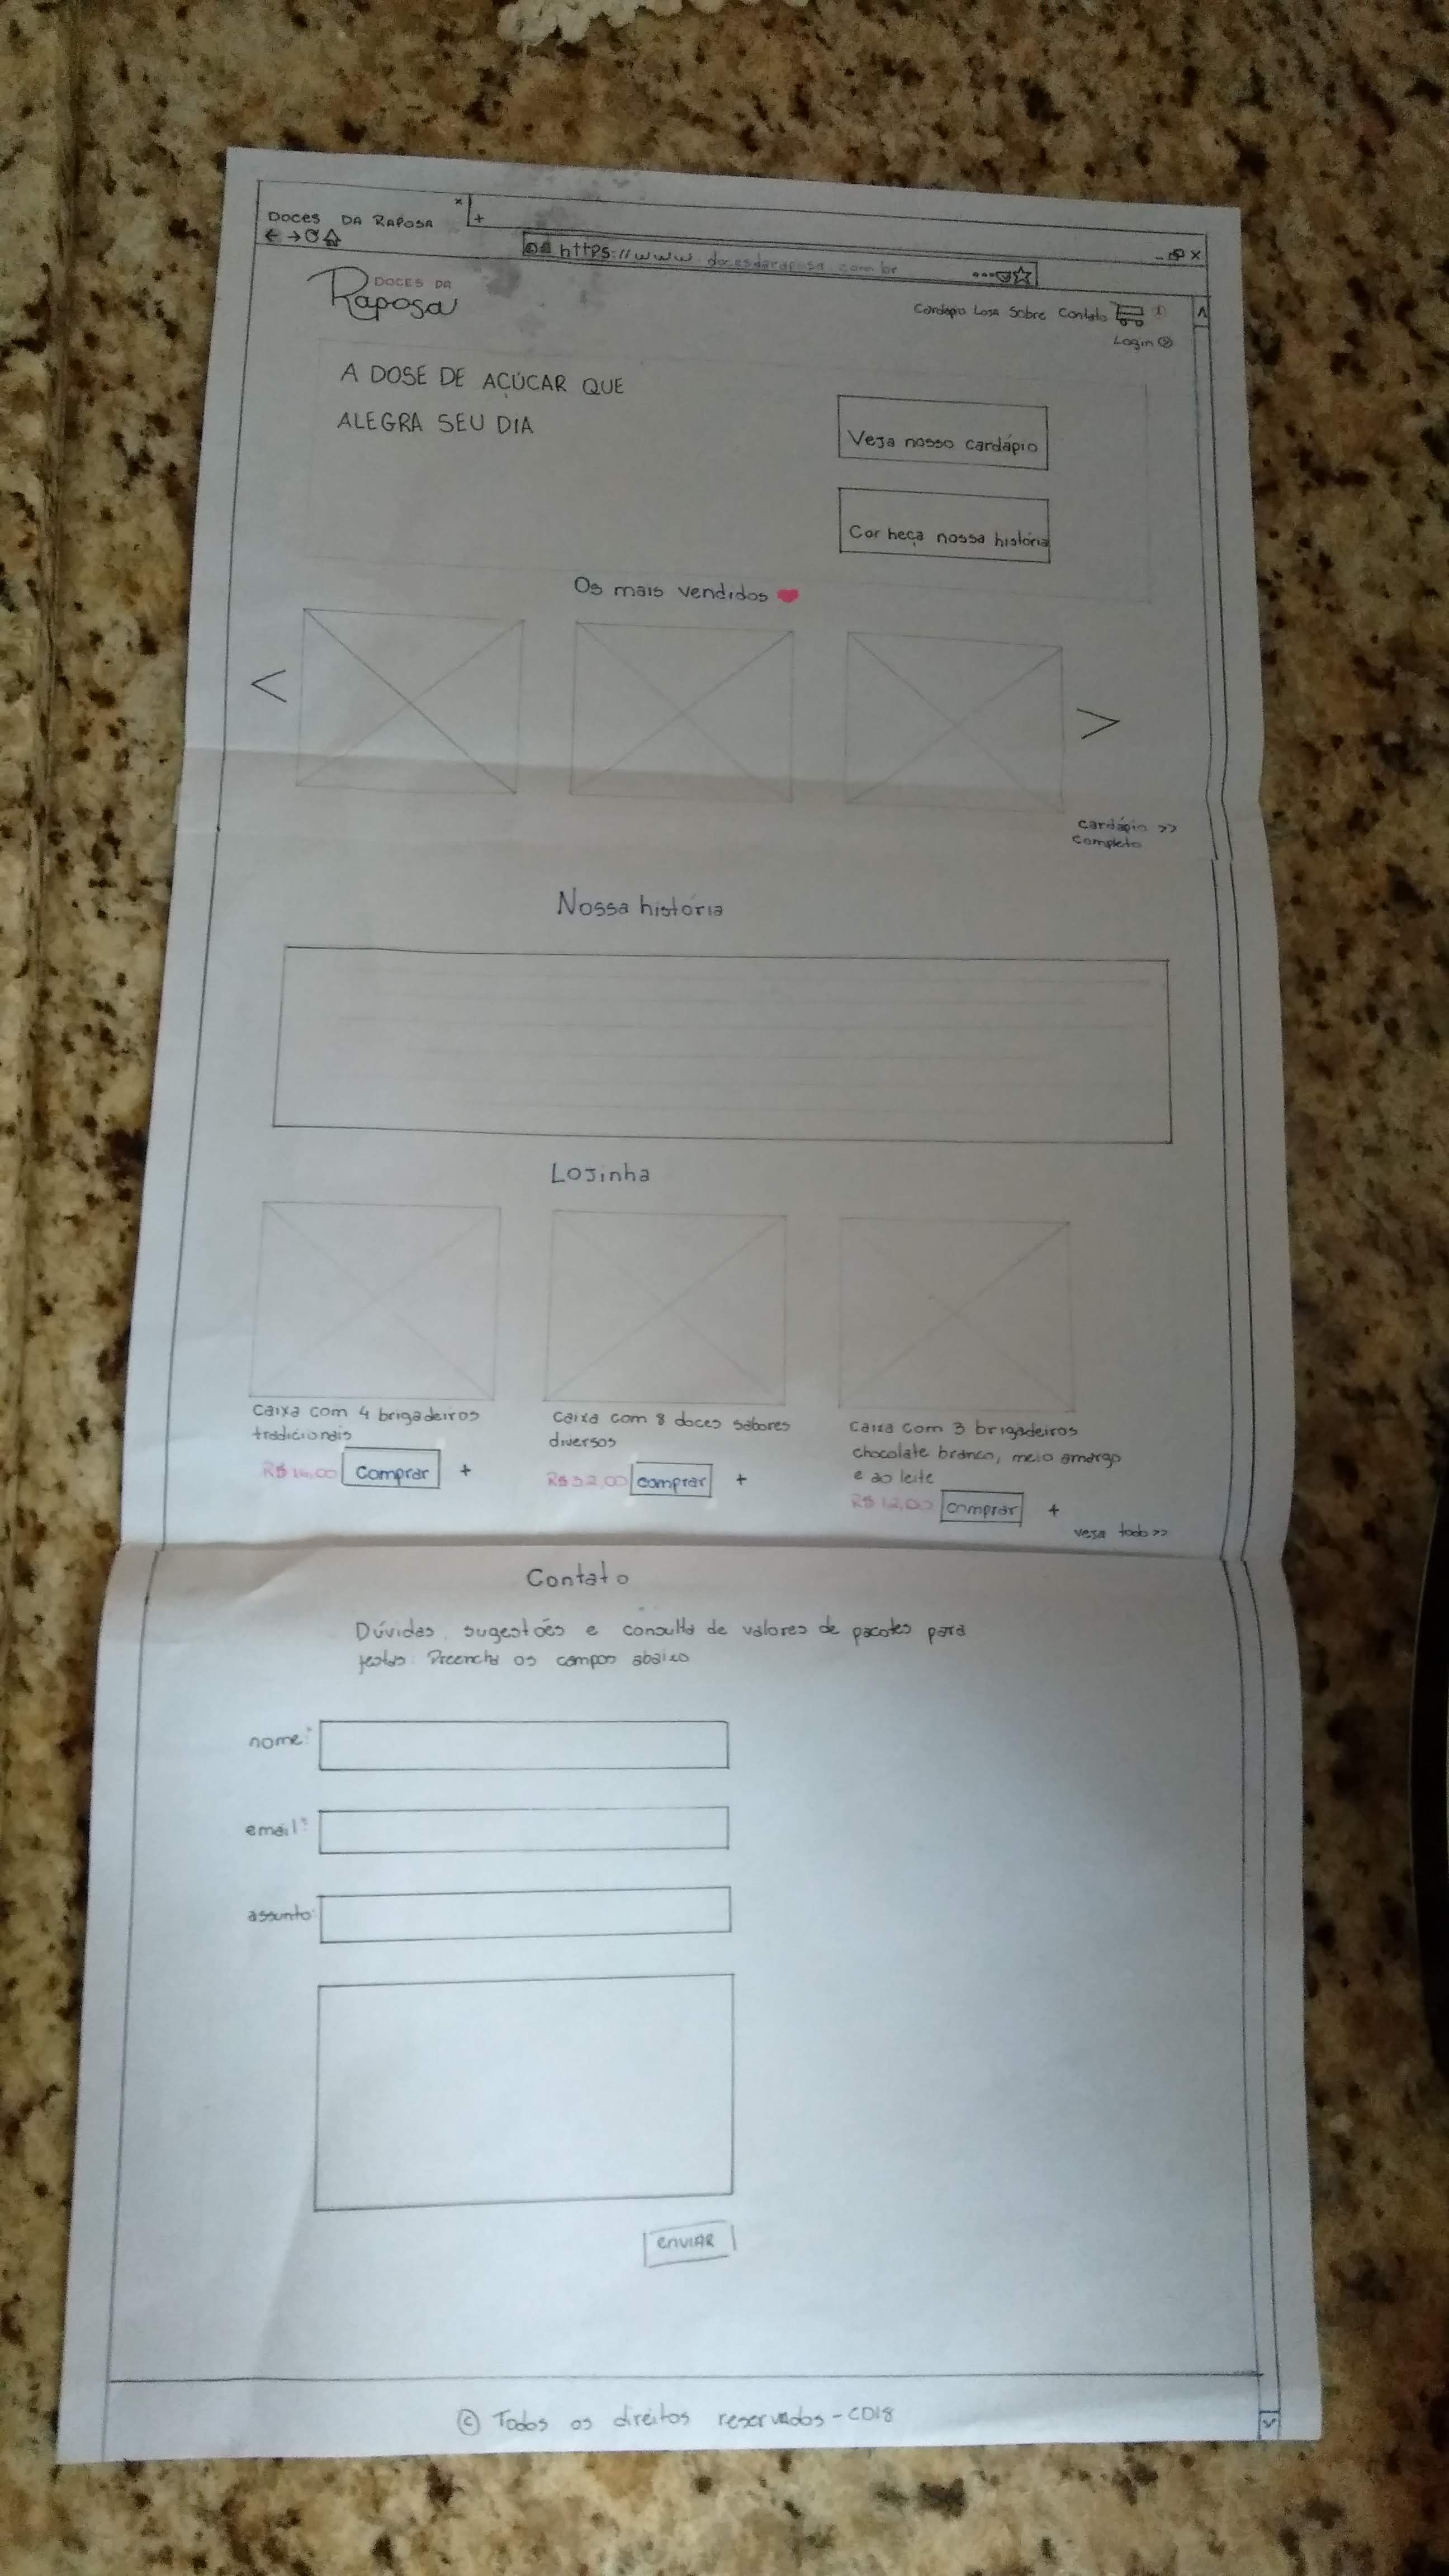 DOCES DA RAPOSA x +
https://www.docesdaraposa.com.br
DOCES DA
Raposa
Cardápio Loja Sobre Contato 1
Login
A DOSE DE AÇÚCAR QUE
ALEGRA SEU DIA
Veja nosso cardápio
Conheça nossa história
Os mais vendidos
< >
cardápio >>
completo
Nossa história
Lojinha
Caixa com 4 brigadeiros
tradicionais
R$16,00 Comprar +
Caixa com 8 doces sabores
diversos
R$32,00 comprar +
Caixa com 3 brigadeiros
chocolate branco, meio amargo
e ao leite
R$12,00 comprar +
veja todo >>
Contato
Dúvidas, sugestões e consulta de valores de pacotes para
festas: Preencha os campos abaixo
nome:*
email:*
assunto:
ENVIAR
© Todos os direitos reservados - CD18